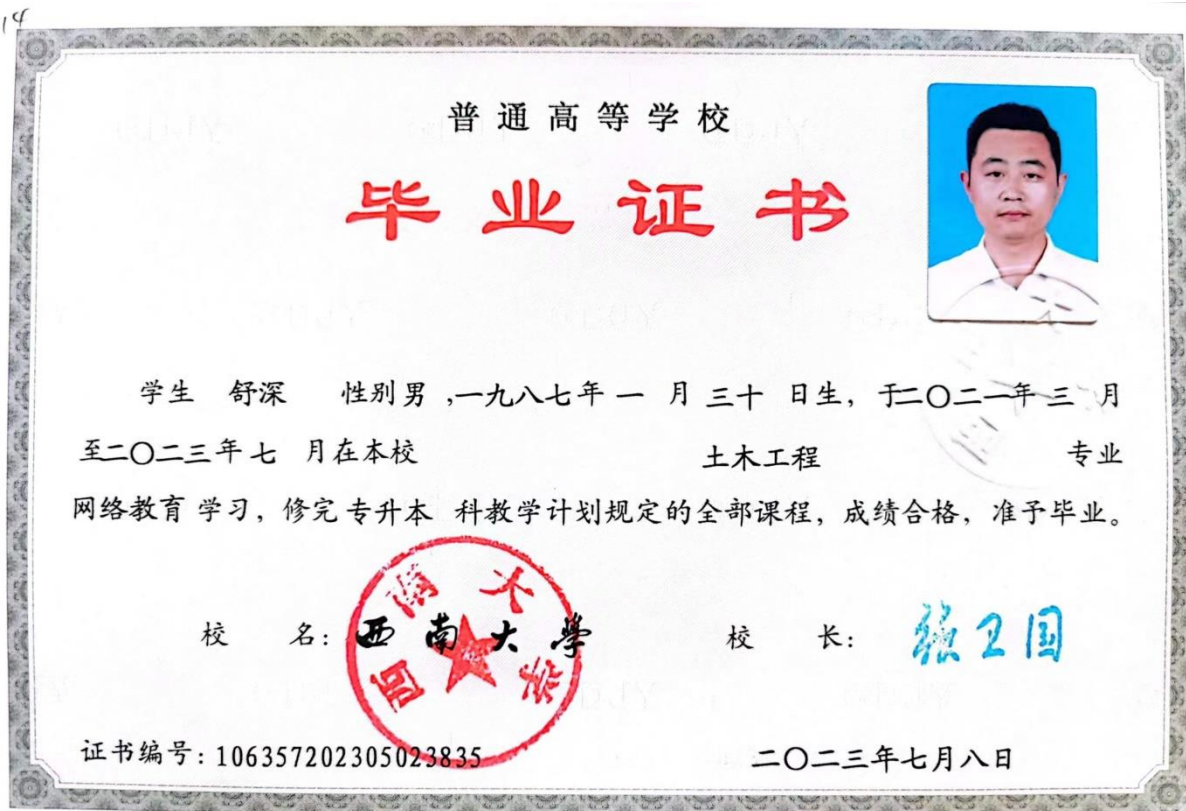 14
普通高等学校
毕业证书
学生 舒深 性别男 ,一九八七年 一 月 三十 日生, 于二〇二一年 三 月
至二〇二三年 七 月在本校 土木工程 专业
网络教育 学习, 修完 专升本 科教学计划规定的全部课程, 成绩合格, 准予毕业。
校 名: 西南大學 校 长: 张卫国
西南大学
证书编号: 106357202305023835 二〇二三年七月八日